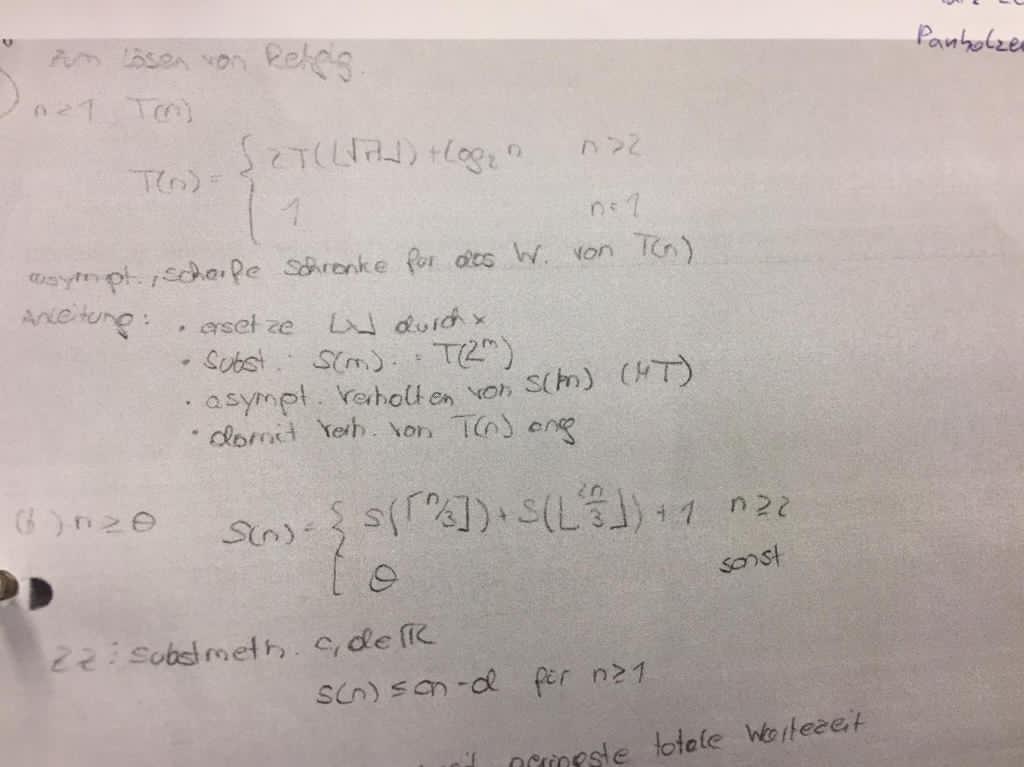 Panholzer
Zum Lösen von Rekglg.
n≥1 T(n)
T(n) = { 2T(⌊√n⌋) + log₂ n n≥2
1 n=1
asympt., scharfe Schranke für das W. von T(n)
Anleitung: • ersetze ⌊x⌋ durch x
• Subst.: S(m) := T(2^m)
• asympt. Verhalten von S(m) (MT)
• damit Verh. von T(n) ang
(b) n ≥ 0 S(n) = { S(⌈n/3⌉) + S(⌊2n/3⌋) + 1 n≥2
0 sonst
zz: substmeth. c, d ∈ ℝ
S(n) ≤ cn-d für n≥1
geringste totale Wartezeit